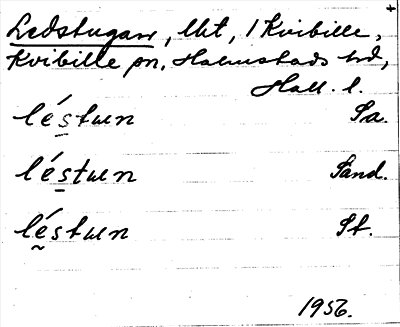 Ledstugan, lht, i Kvibille,
Kvibille sn, Halmstads hd,
Hall. l.
lés̠twn Sa.
lés̠twn Sand.
lḛ́stwn St.
1956.